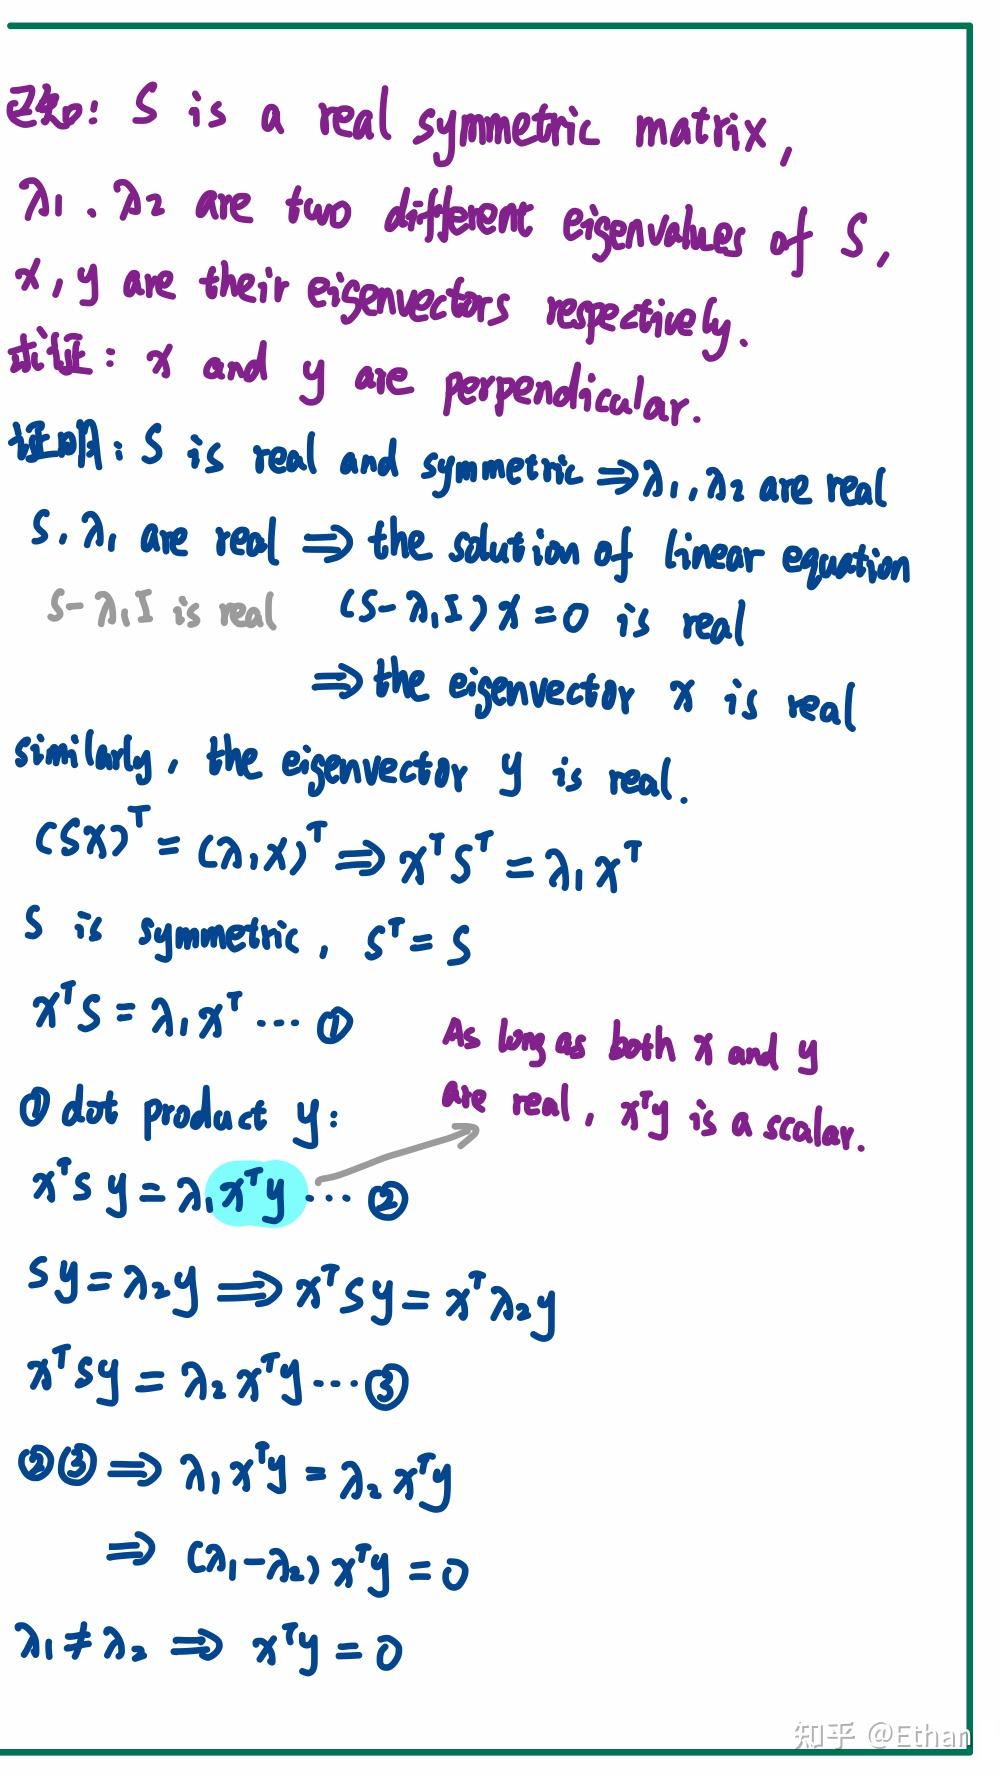 已知: S is a real symmetric matrix,
λ1 . λ2 are two different eigenvalues of S,
x, y are their eigenvectors respectively.
求证: x and y are perpendicular.
证明: S is real and symmetric ⇒ λ1, λ2 are real
S, λ1 are real ⇒ the solution of linear equation
S-λ1I is real (S-λ1I)x=0 is real
⇒ the eigenvector x is real
similarly, the eigenvector y is real.
(Sx)ᵀ = (λ1x)ᵀ ⇒ xᵀSᵀ = λ1xᵀ
S is symmetric, Sᵀ = S
xᵀS = λ1xᵀ ... ①
As long as both x and y
are real, xᵀy is a scalar.
① dot product y:
xᵀSy = λ1xᵀy ... ②
Sy = λ2y ⇒ xᵀSy = xᵀλ2y
xᵀSy = λ2xᵀy ... ③
②③ ⇒ λ1xᵀy = λ2xᵀy
⇒ (λ1-λ2)xᵀy = 0
λ1 ≠ λ2 ⇒ xᵀy = 0
知乎 @Ethan